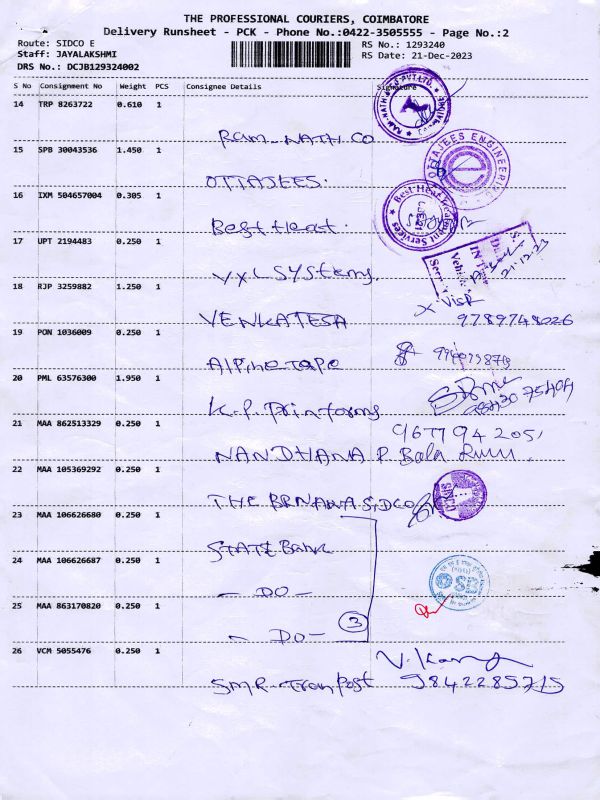 THE PROFESSIONAL COURIERS, COIMBATORE
Delivery Runsheet - PCK - Phone No.:0422-3505555 - Page No.:2
Route: SIDCO E
RS No.: 1293240
Staff: JAYALAKSHMI
RS Date: 21-Dec-2023
DRS No.: DCJB129324002
S No Consignment No Weight PCS Consignee Details Signature
14 TRP 8263722 0.610 1
Ram-NATH.CO
15 SPB 30043536 1.450 1
OTTAJEES ENGINEERING
OTTAJEES.
16 IXM 504657004 0.305 1
Best Heat Treatment Services
Best Heat.
17 UPT 2194483 0.250 1
21.12.23
VXL SYStems.
18 RJP 3259882 1.250 1
VENKATESA
9789748026
19 PON 1036009 0.250 1
Alpine tape
20 PML 63576300 1.950 1
K.P. Printforms
21 MAA 862513329 0.250 1
9677942051
NANDHANA P. Bala
22 MAA 105369292 0.250 1
THE SIDCO
SIDCO
23 MAA 106626680 0.250 1
STATE Bank
24 MAA 106626687 0.250 1
- DO -
SBI
25 MAA 863170820 0.250 1
3
- DO -
26 VCM 5055476 0.250 1
SMR-Tranpost 9842285715